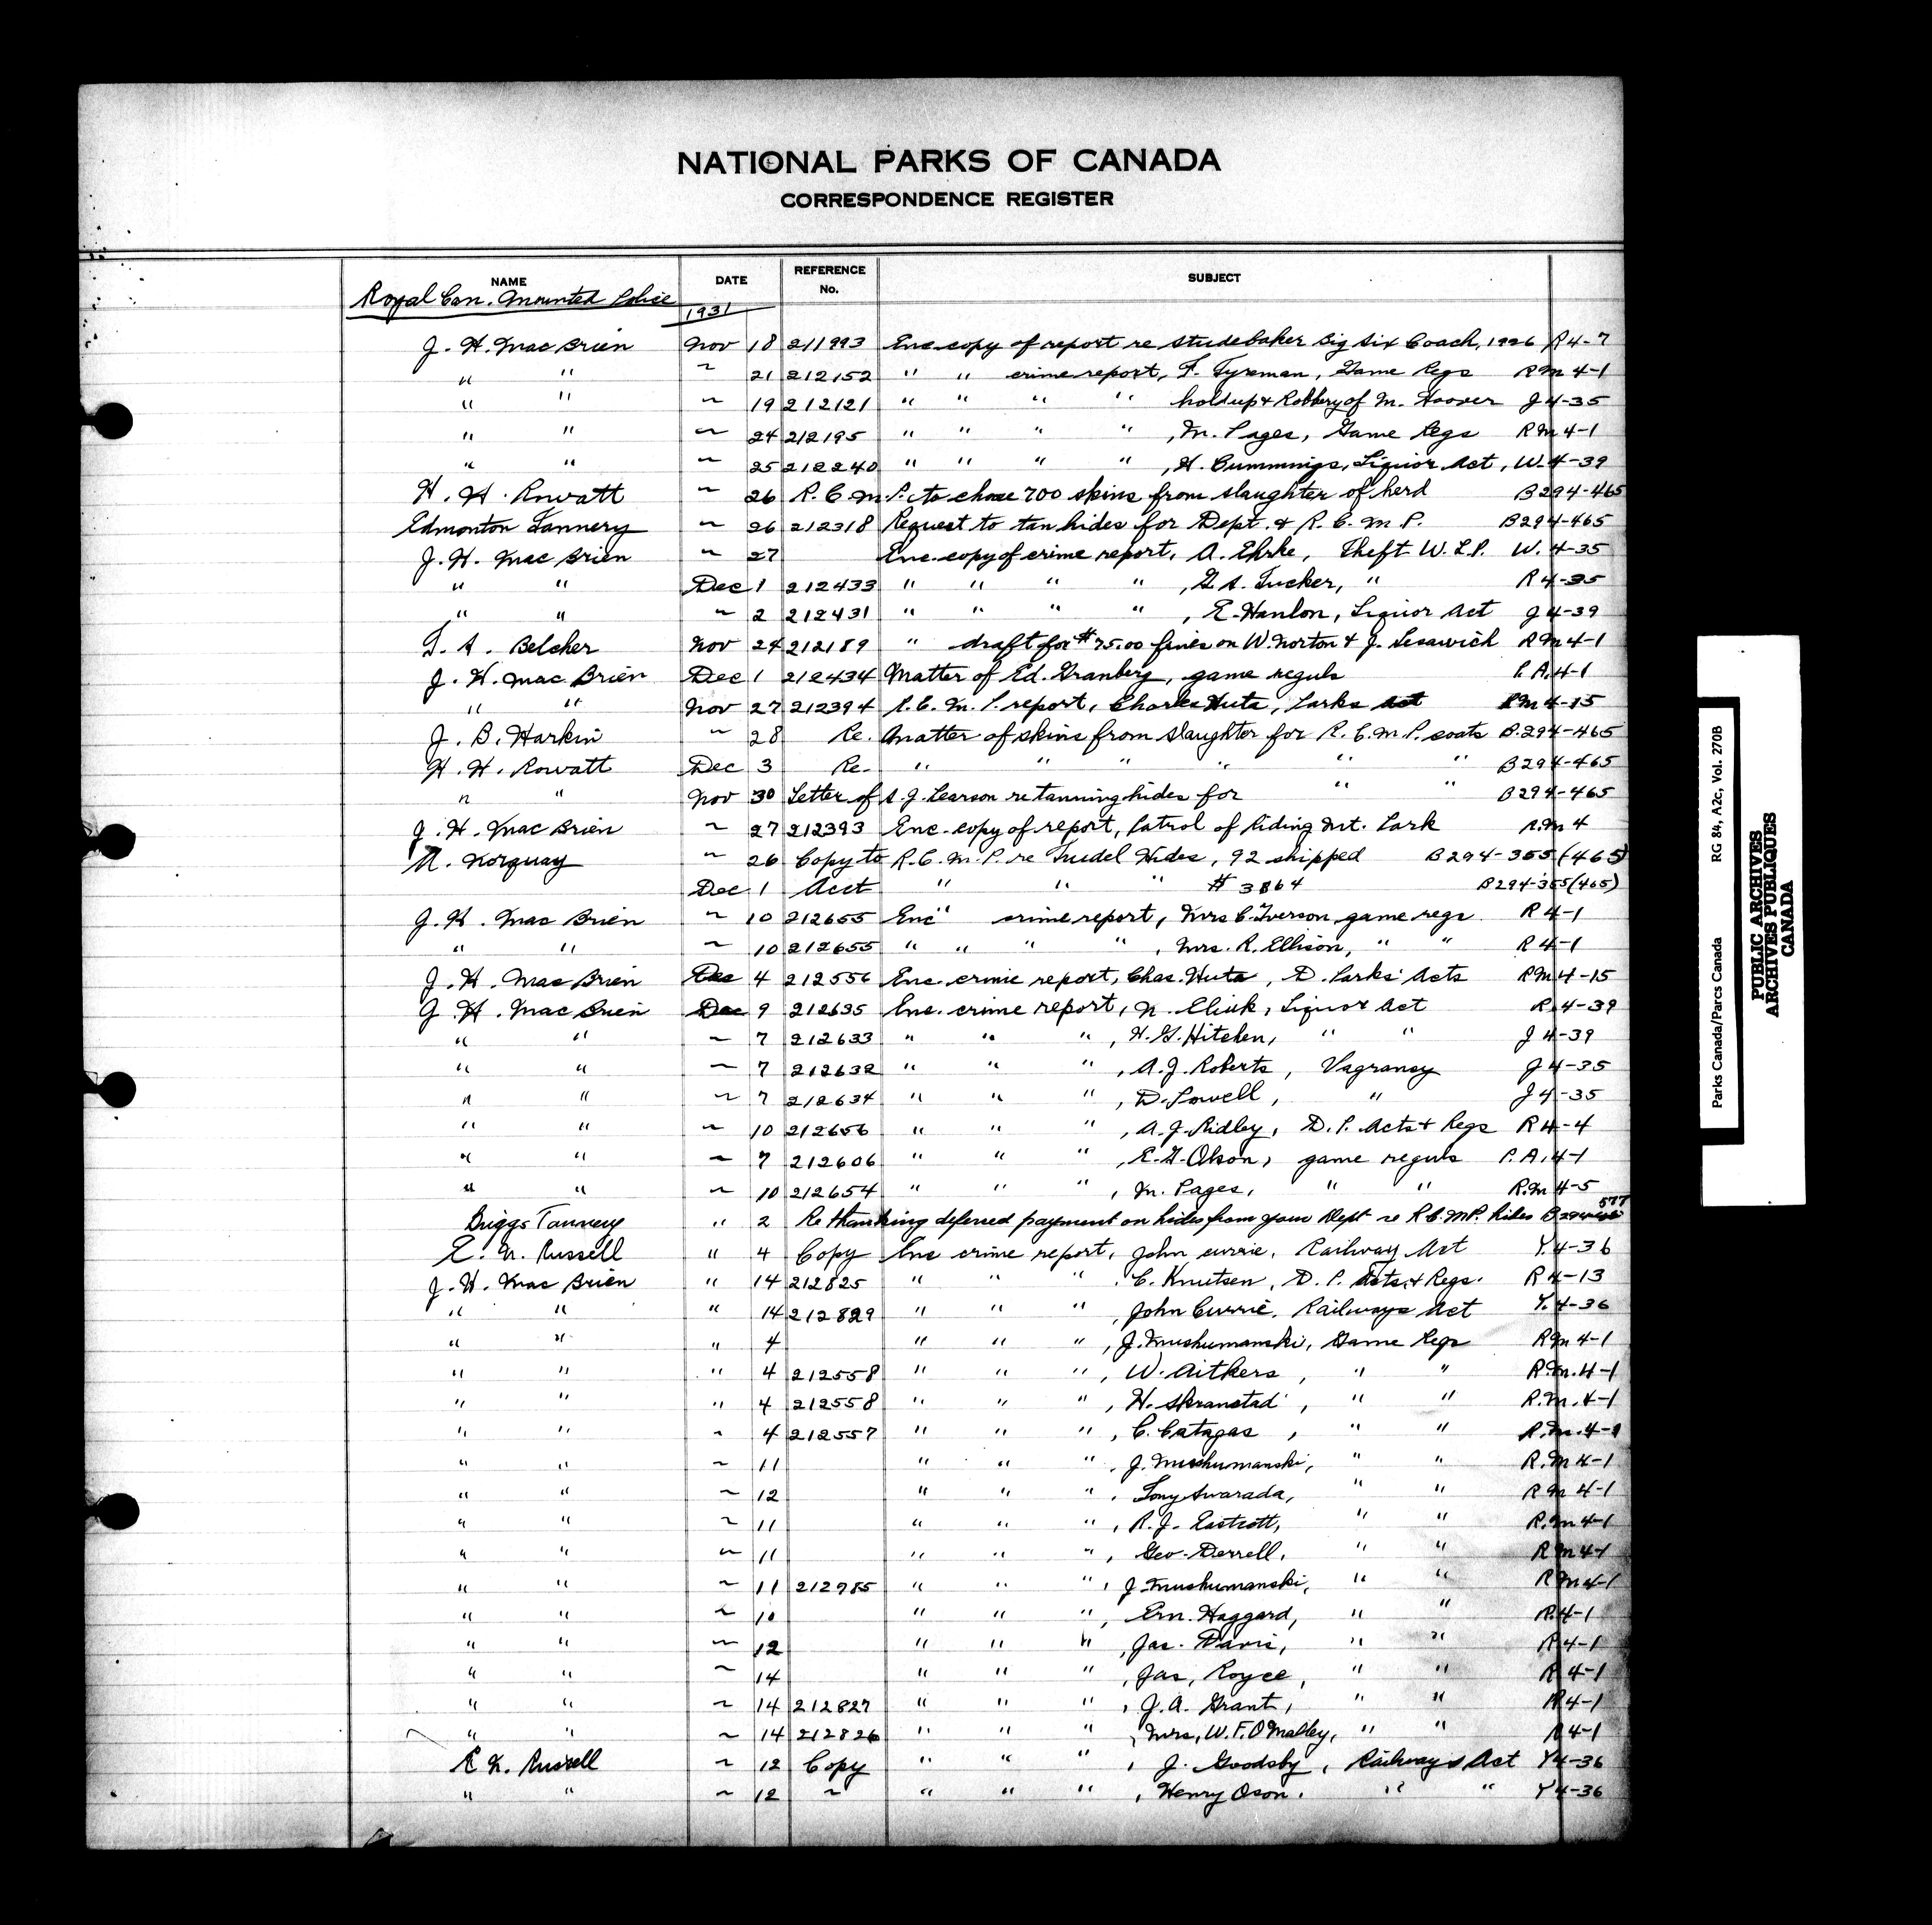 NATIONAL PARKS OF CANADA
CORRESPONDENCE REGISTER
NAME DATE REFERENCE No. SUBJECT
Royal Can. Mounted Police 1931
J. H. MacBrien Nov 18 211993 Enc. copy of report re Studebaker Big Six Coach, 1926 R4-7
" " ~ 21 212152 " " crime report, F. Tyreman, Game Regs RM 4-1
" " ~ 19 212121 " " " " holdup & Robbery of M. Hoover J 4-35
" " ~ 24 212195 " " " " , M. Pages, Game Regs RM 4-1
" " ~ 25 212240 " " " " , H. Cummings, Liquor Act, W. 4-39
H. H. Rowatt ~ 26 R.C.M.P. to chose 700 skins from slaughter of herd B294-465
Edmonton Tannery ~ 26 212318 Request to tan hides for Dept. & R.C.M.P. B294-465
J. H. MacBrien ~ 27 Enc. copy of crime report, A. Ehrke, Theft W.L.P. W. 4-35
" " Dec 1 212433 " " " " , G. A. Tucker, " R 4-35
" " ~ 2 212431 " " " " , E. Hanlon, Liquor Act J 4-39
T. A. Belcher Nov 24 212189 " draft for $75.00 fines on W. Norton & J. Lesawich RM 4-1
J. H. MacBrien Dec 1 212434 Matter of Ed. Granberg, game reguls P.A. 4-1
" " Nov 27 212394 R.C.M.P. report, Charles Huta, Parks Act RM 4-15
J. B. Harkin ~ 28 Re. Matter of skins from slaughter for R.C.M.P. coats B.294-465
H. H. Rowatt Dec 3 Re. " " " " " " B294-465
" " Nov 30 Letter of S. J. Pearson re tanning hides for " " B294-465
J. H. MacBrien ~ 27 212393 Enc. copy of report, Patrol of Riding Mt. Park R.M 4
A. Norquay ~ 26 Copy to R.C.M.P. re Trudel Hides, 92 shipped B294-355(465)
Dec 1 Acct " " " # 3864 B294-355(465)
J. H. MacBrien ~ 10 212655 Enc " crime report, Mrs C. Iverson game regs. R 4-1
" " ~ 10 212655 " " " " , Mrs. R. Ellison, " " R 4-1
J. H. MacBrien Dec 4 212556 Enc. crime report, Chas. Huta, D. Parks' Acts RM 4-15
J. H. MacBrien Dec 9 212635 Enc. crime report, N. Chuk, Liquor Act R. 4-39
" " ~ 7 212633 " " " , H. G. Hitchen, " " J 4-39
" " ~ 7 212632 " " " , A. J. Roberts, Vagrancy J 4-35
" " ~ 7 212634 " " " , D. Powell, " J 4-35
" " ~ 10 212656 " " " , A. J. Ridley, D.P. Acts & Regs R 4-4
" " ~ 7 212606 " " " , E. G. Olson, game reguls P.A. 4-1
" " ~ 10 212654 " " " , M. Pages, " " R.M 4-5
Briggs Tannery " 2 Re thanking deferred payment on hides from your Dept re R.C.M.P. hides B 577
E. N. Russell " 4 Copy Enc crime report, John Currie, Railway Act Y. 4-36
J. H. MacBrien " 14 212825 " " " , C. Knutsen, D.P. Acts & Regs. R 4-13
" " " 14 212829 " " " , John Currie, Railways Act Y. 4-36
" " " 4 " " " , J. Mushumanski, Game Regs RM 4-1
" " " 4 212558 " " " , W. Aitkers, " " R.M. 4-1
" " " 4 212558 " " " , H. Skranstad, " " R.M. 4-1
" " ~ 4 212557 " " " , C. Catagas, " " R.M. 4-1
" " ~ 11 " " " , J. Mushumanski, " " R.M 4-1
" " ~ 12 " " " , Tony Swarada, " " RM 4-1
" " ~ 11 " " " , R. J. Eastcott, " " R.M 4-1
" " ~ 11 " " " , Geo. Derrell, " " RM 4-1
" " ~ 11 212785 " " " , J. Mushumanski, " " RM 4-1
" " ~ 10 " " " , Ern. Haggard, " " R. 4-1
" " ~ 12 " " " , Jas. Davis, " " R 4-1
" " ~ 14 " " " , Jas. Royce, " " R 4-1
" " ~ 14 212827 " " " , J. A. Grant, " " R 4-1
" " ~ 14 212826 " " " , Mrs. W. F. O'Malley, " " R 4-1
E. N. Russell ~ 12 Copy " " " , J. Goodsby, Railways Act Y 4-36
" " ~ 12 ~ " " " , Henry Oson. " " Y 4-36
Parks Canada/Parcs Canada RG 84, A2c, Vol. 270B
PUBLIC ARCHIVES
ARCHIVES PUBLIQUES
CANADA